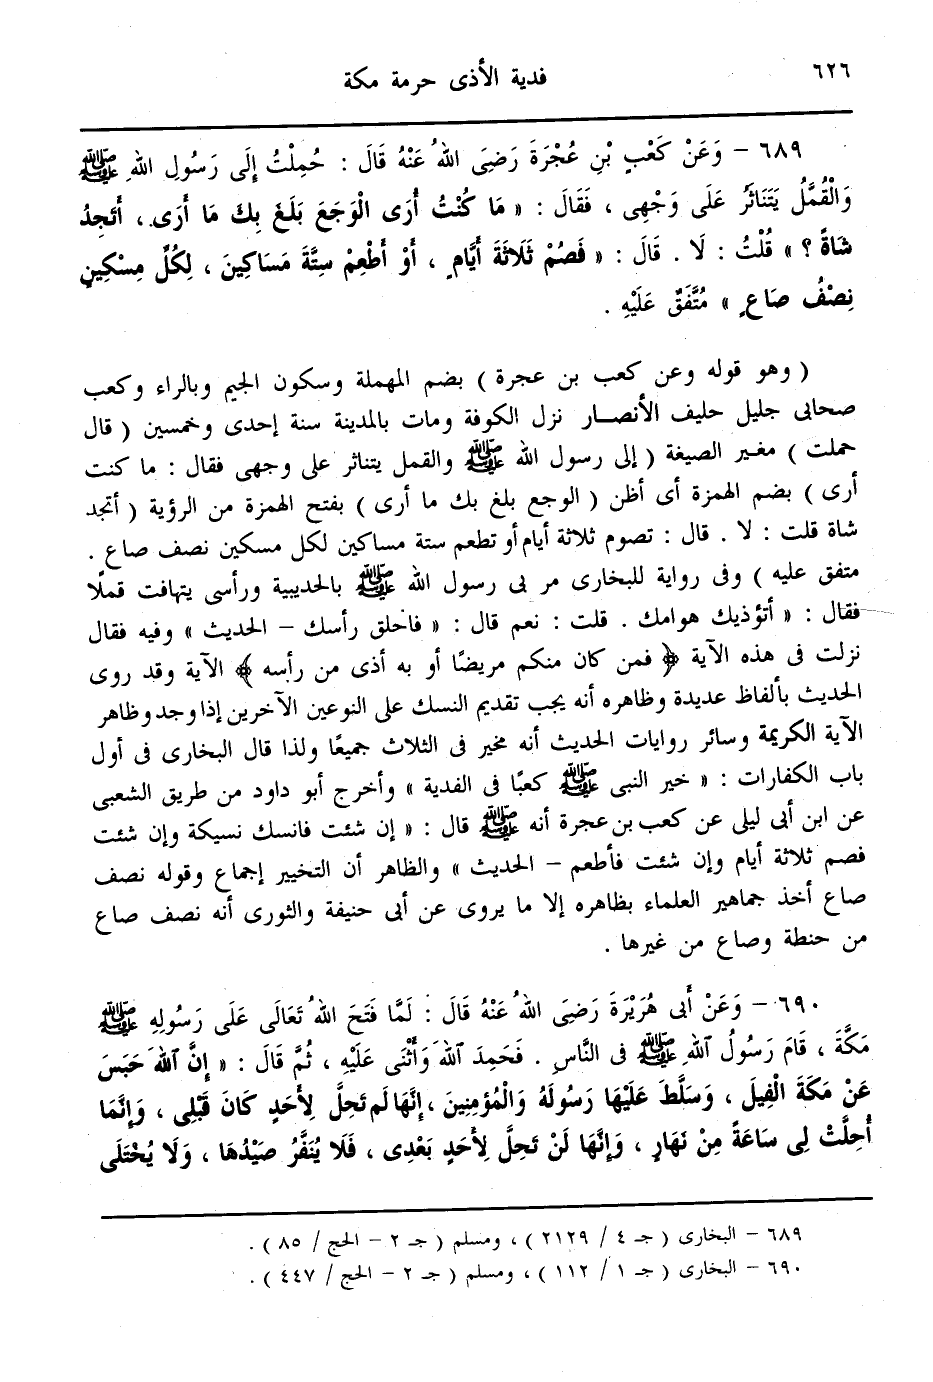 ٦٢٦
فدية الأذى حرمة مكة
٦٨٩ – وَعَنْ كَعْبِ بْنِ عُجْرَةَ رَضِىَ اللهُ عَنْهُ قَالَ : حُمِلْتُ إِلَى رَسُولِ اللهِ ﷺ
وَالْقُمَّلُ يَتَنَاثَرُ عَلَى وَجْهِى ، فَقَالَ : « مَا كُنْتُ أُرَى الْوَجَعَ بَلَغَ بِكَ مَا أَرَى ، أَتَجِدُ
شَاةً ؟ » قُلْتُ : لَا . قَالَ : « فَصُمْ ثَلَاثَةَ أَيَّامٍ ، أَوْ أَطْعِمْ سِتَّةَ مَسَاكِينَ ، لِكُلِّ مِسْكِينٍ
نِصْفُ صَاعٍ » مُتَّفَقٌ عَلَيْهِ .
( وهو قوله وعن كعب بن عجرة ) بضم المهملة وسكون الجيم وبالراء وكعب
صحابى جليل حليف الأنصار نزل الكوفة ومات بالمدينة سنة إحدى وخمسين ( قال
حملت ) مغير الصيغة ( إلى رسول الله ﷺ والقمل يتناثر على وجهى فقال : ما كنت
أرى ) بضم الهمزة أى أظن ( الوجع بلغ بك ما أرى ) بفتح الهمزة من الرؤية ( أتجد
شاة قلت : لا . قال : تصوم ثلاثة أيام أو تطعم ستة مساكين لكل مسكين نصف صاع .
متفق عليه ) وفى رواية للبخارى مر بى رسول الله ﷺ بالحديبية ورأسى يتهافت قملًا
فقال : « أتؤذيك هوامك . قلت : نعم قال : « فاحلق رأسك – الحديث » وفيه فقال
نزلت فى هذه الآية ﴿ فمن كان منكم مريضًا أو به أذى من رأسه ﴾ الآية وقد روى
الحديث بألفاظ عديدة وظاهره أنه يجب تقديم النسك على النوعين الآخرين إذا وجد وظاهر
الآية الكريمة وسائر روايات الحديث أنه مخير فى الثلاث جميعًا ولذا قال البخارى فى أول
باب الكفارات : « خير النبى ﷺ كعبًا فى الفدية » وأخرج أبو داود من طريق الشعبى
عن ابن أبى ليلى عن كعب بن عجرة أنه ﷺ قال : « إن شئت فانسك نسيكة وإن شئت
فصم ثلاثة أيام وإن شئت فأطعم – الحديث » والظاهر أن التخيير إجماع وقوله نصف
صاع أخذ جماهير العلماء بظاهره إلا ما يروى عن أبى حنيفة والثورى أنه نصف صاع
من حنطة وصاع من غيرها .
٦٩٠ – وَعَنْ أَبِى هُرَيْرَةَ رَضِىَ اللهُ عَنْهُ قَالَ : لَمَّا فَتَحَ اللهُ تَعَالَى عَلَى رَسُولِهِ ﷺ
مَكَّةَ ، قَامَ رَسُولُ اللهِ ﷺ فِى النَّاسِ . فَحَمِدَ اللهَ وَأَثْنَى عَلَيْهِ ، ثُمَّ قَالَ : « إِنَّ اللهَ حَبَسَ
عَنْ مَكَّةَ الْفِيلَ ، وَسَلَّطَ عَلَيْهَا رَسُولَهُ وَالْمُؤْمِنِينَ ، إِنَّهَا لَم تَحِلَّ لِأَحَدٍ كَانَ قَبْلِى ، وَإِنَّمَا
أُحِلَّتْ لِى سَاعَةً مِنْ نَهَارٍ ، وَإِنَّهَا لَنْ تَحِلَّ لِأَحَدٍ بَعْدِى ، فَلَا يُنَفَّرُ صَيْدُهَا ، وَلَا يُخْتَلَى
٦٨٩ – البخارى ( جـ ٤ / ٢١٢٩ ) ، ومسلم ( جـ ٢ – الحج / ٨٥ ) .
٦٩٠ – البخارى ( جـ ١ / ١١٢ ) ، ومسلم ( جـ ٢ – الحج / ٤٤٧ ) .